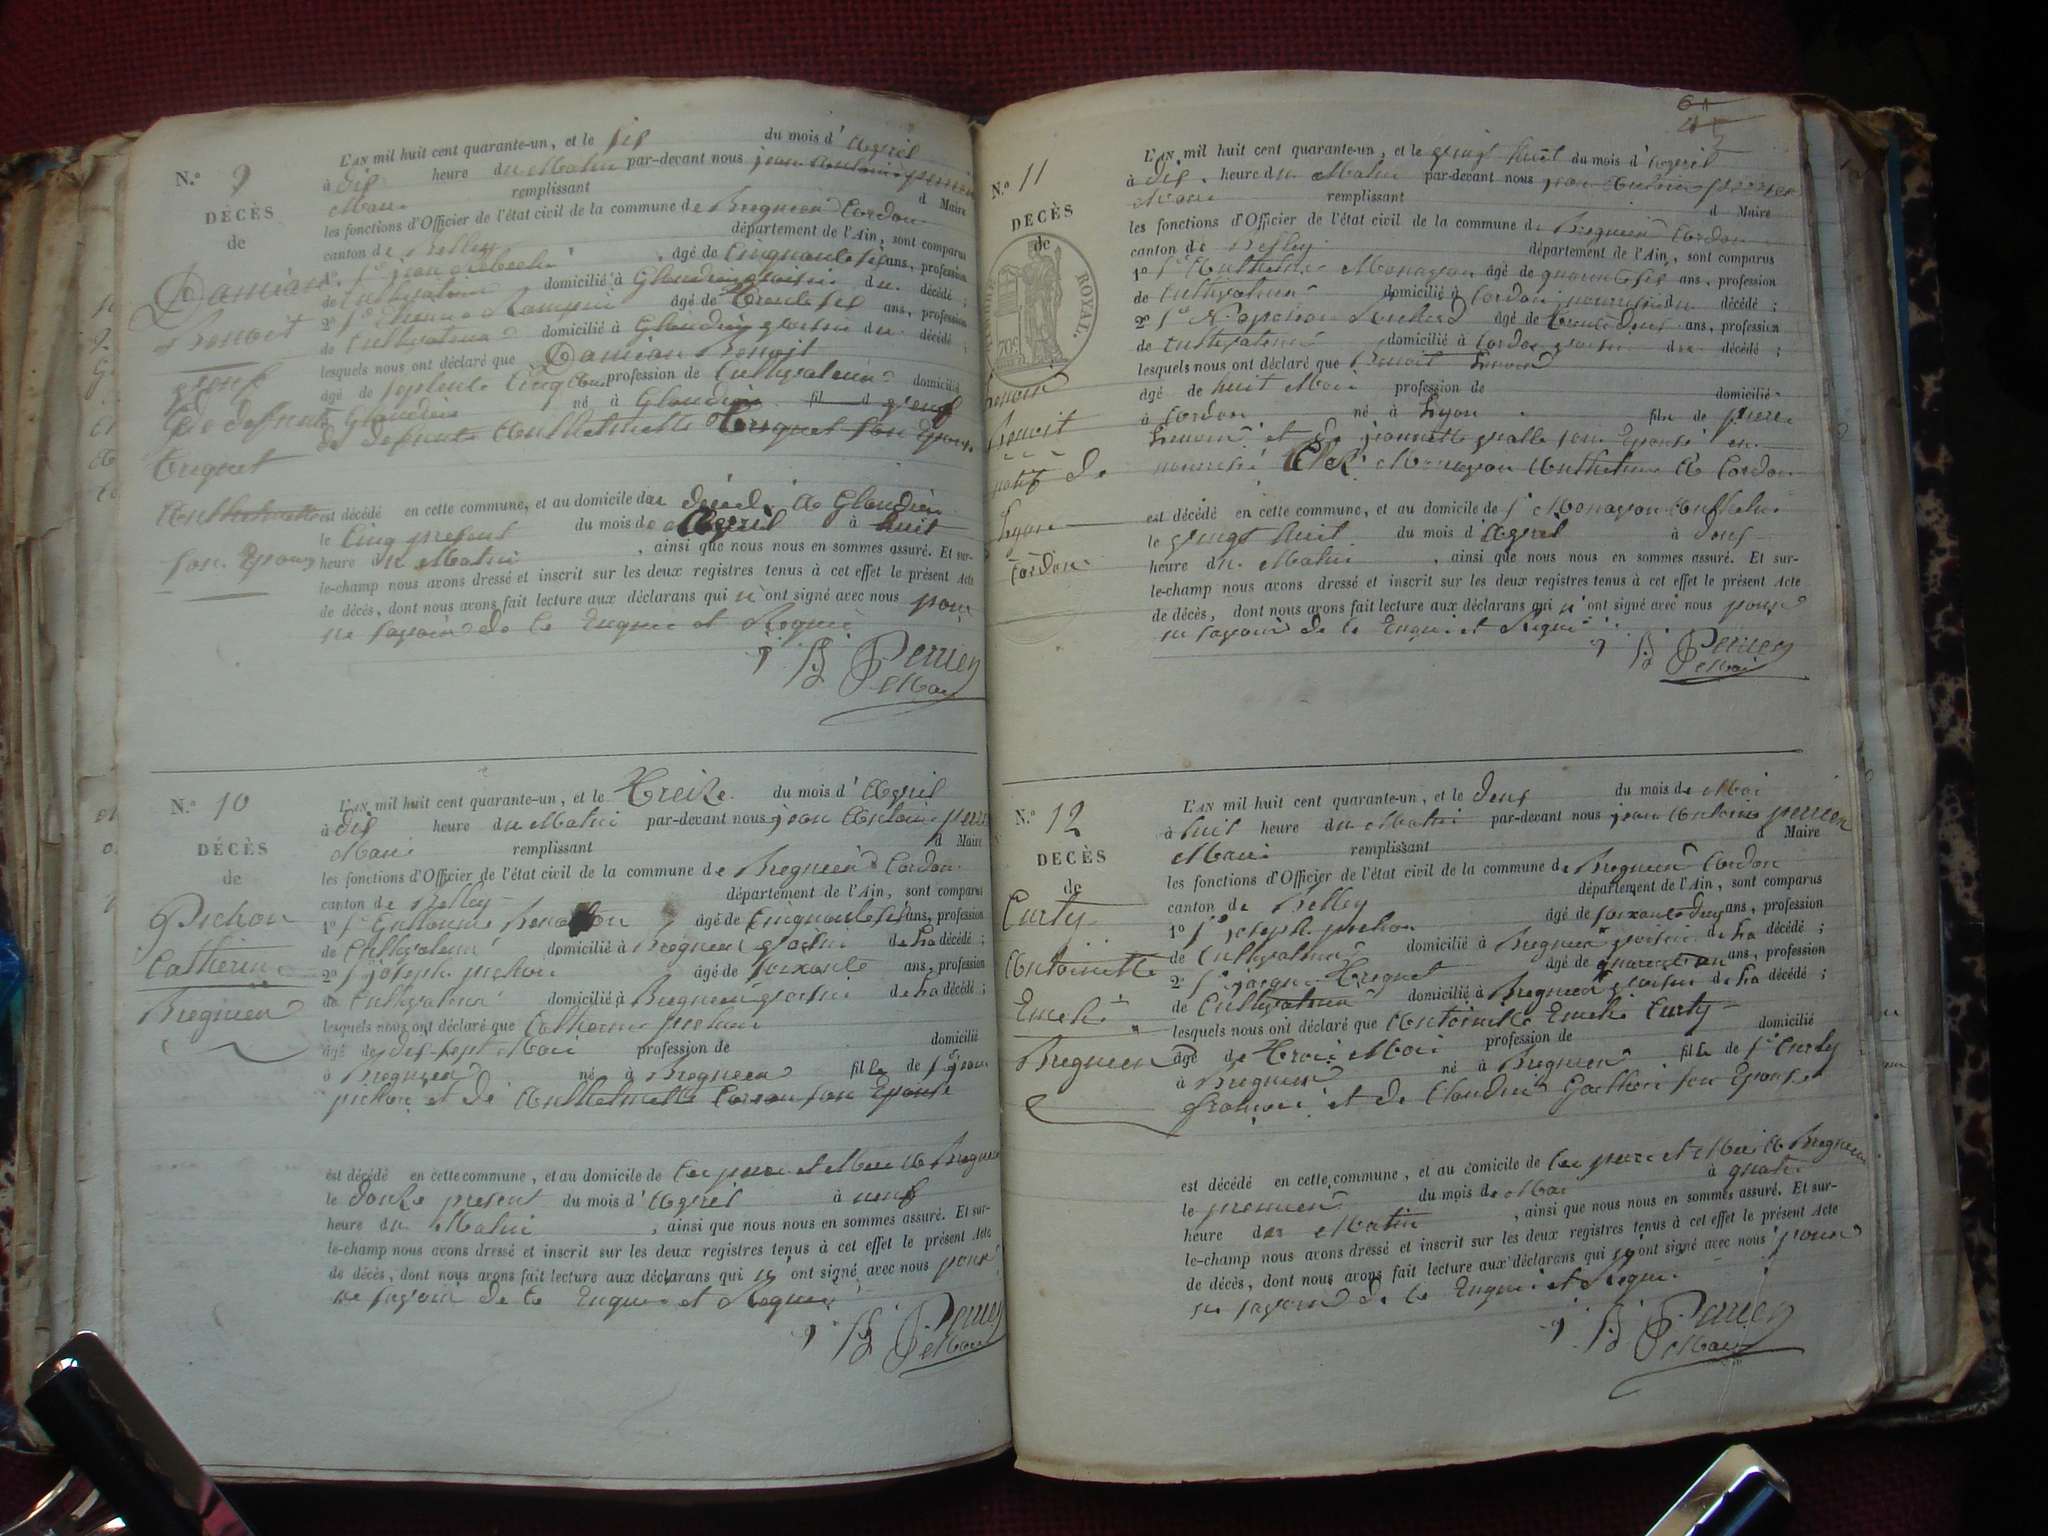 N.º 9
DÉCÈS
de
Damian
Benoit
veuf
de defunte
Treguet
Anthelmette
son Epouse
L'AN mil huit cent quarante-un, et le six du mois d'Avril
à dix heure du Matin par-devant nous jean Antoine perrier
Maire remplissant d Maire
les fonctions d'Officier de l'état civil de la commune de Bregnier Cordon
canton de Belley département de l'Ain, sont comparus
1º Sr jean âgé de Cinquante six ans, profession
de Cultivateur domicilié à Glandieu voisin du décédé ;
2º Sr âgé de Trente six ans, profession
de Cultivateur domicilié à Glandieu voisin du décédé ;
lesquels nous ont déclaré que Damian Benoit
âgé de septente Cinq ans profession de Cultivateur domicilié
à Glandieu né à Glandieu fil d veuf
de defunte Anthelmette Treguet son Epouse
est décédé en cette commune, et au domicile du décédé a Glandieu
le Cinq present du mois d Avril à huit
heure du Matin , ainsi que nous nous en sommes assuré. Et sur-
le-champ nous avons dressé et inscrit sur les deux registres tenus à cet effet le présent Acte
de décès, dont nous avons fait lecture aux déclarans qui n'ont signé avec nous pour
ne savoir de ce Enquis et Requis
Perrier
Maire
N.º 10
DÉCÈS
de
Pichon
Catherine
Bregnier
L'AN mil huit cent quarante-un, et le Treize du mois d'Avril
à dix heure du Matin par-devant nous jean Antoine perrier
Maire remplissant d Maire
les fonctions d'Officier de l'état civil de la commune de Bregnier Cordon
canton de Belley département de l'Ain, sont comparus
1º Sr âgé de Cinquante six ans, profession
de Cultivateur domicilié à Bregnier voisin de La décédé ;
2º Sr joseph pichon âgé de soixante ans, profession
de Cultivateur domicilié à Bregnier voisin de La décédé ;
lesquels nous ont déclaré que Catherine pichon
âgé de dix-sept Moi profession de domicilié
à Bregnier né à Bregnier fille de Sr jean
pichon et de Anthelmette son Epouse
est décédé en cette commune, et au domicile de Ces pere et Mere a Bregnier
le douze present du mois d'Avril à neuf
heure du Matin , ainsi que nous nous en sommes assuré. Et sur-
le-champ nous avons dressé et inscrit sur les deux registres tenus à cet effet le présent Acte
de décès, dont nous avons fait lecture aux déclarans qui n'ont signé avec nous pour
ne savoir de ce Enquis et Requis
Perrier
Maire
N.º 11
DÉCÈS
de
TIMBRE ROYAL.
Benoit
natif de
Lyon
Cordon
L'AN mil huit cent quarante-un, et le vingt huit du mois d'Avril
à dix heure du Matin par-devant nous jean Antoine perrier
Maire remplissant d Maire
les fonctions d'Officier de l'état civil de la commune de Bregnier Cordon
canton de Belley département de l'Ain, sont comparus
1º Sr Anthelme Monavon âgé de quarante six ans, profession
de Cultivateur domicilié à Cordon du décédé ;
2º Sr âgé de trente deux ans, profession
de Cultivateur domicilié à Cordon voisin du décédé ;
lesquels nous ont déclaré que Benoit
âgé de huit Moi profession de domicilié
à Cordon né à Lyon fils de pierre
et de jeannette son Epouse en
chez Monavon Anthelme a Cordon
est décédé en cette commune, et au domicile de Sr Monavon Anthelme
le vingt huit du mois d'Avril à deux
heure du Matin , ainsi que nous nous en sommes assuré. Et sur-
le-champ nous avons dressé et inscrit sur les deux registres tenus à cet effet le présent Acte
de décès, dont nous avons fait lecture aux déclarans qui n'ont signé avec nous pour
ne savoir de ce Enquis et Requis
Perrier
Maire
N.º 12
DECÈS
de
Curty
Antoinette
Emelie
Bregnier
L'AN mil huit cent quarante-un, et le deux du mois de Mai
à huit heure du Matin par-devant nous jean Antoine perrier
Maire remplissant d Maire
les fonctions d'Officier de l'état civil de la commune de Bregnier Cordon
canton de Belley département de l'Ain, sont comparus
1º Sr joseph pichon âgé de soixante deux ans, profession
de Cultivateur domicilié à Bregnier voisin de La décédé ;
2º Sr jacque Treguet âgé de ans, profession
de Cultivateur domicilié à Bregnier voisin de La décédé ;
lesquels nous ont déclaré que Antoinette Emelie Curty
âgé de Troi Moi profession de domicilié
à Bregnier né à Bregnier fille de Sr Curty
françoi et de Claudine son Epouse
est décédé en cette commune, et au domicile de Ces pere et Mere a Bregnier
le premier du mois de Mai à quatre
heure du Matin , ainsi que nous nous en sommes assuré. Et sur-
le-champ nous avons dressé et inscrit sur les deux registres tenus à cet effet le présent Acte
de décès, dont nous avons fait lecture aux déclarans qui n'ont signé avec nous pour
ne savoir de ce Enquis et Requis
Perrier
Maire